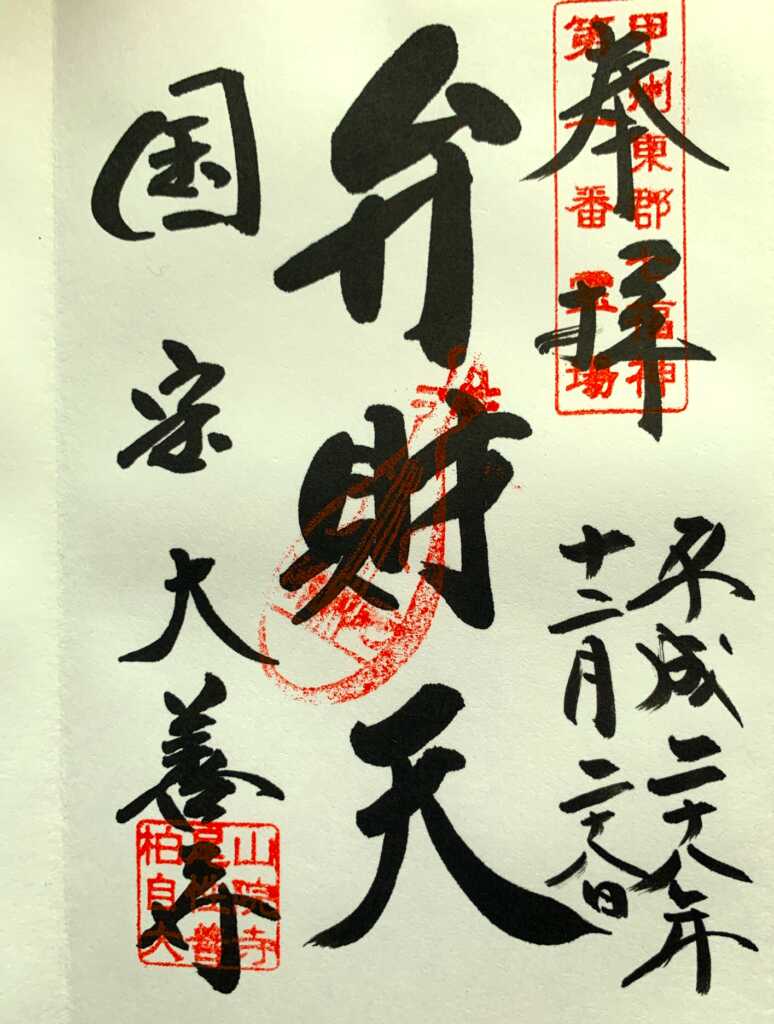 甲州東郡七福神
第一番霊場
奉拝
平成二十八年
十二月二十八日
弁財天
国宝大善寺
柏尾山
自性院
大善寺